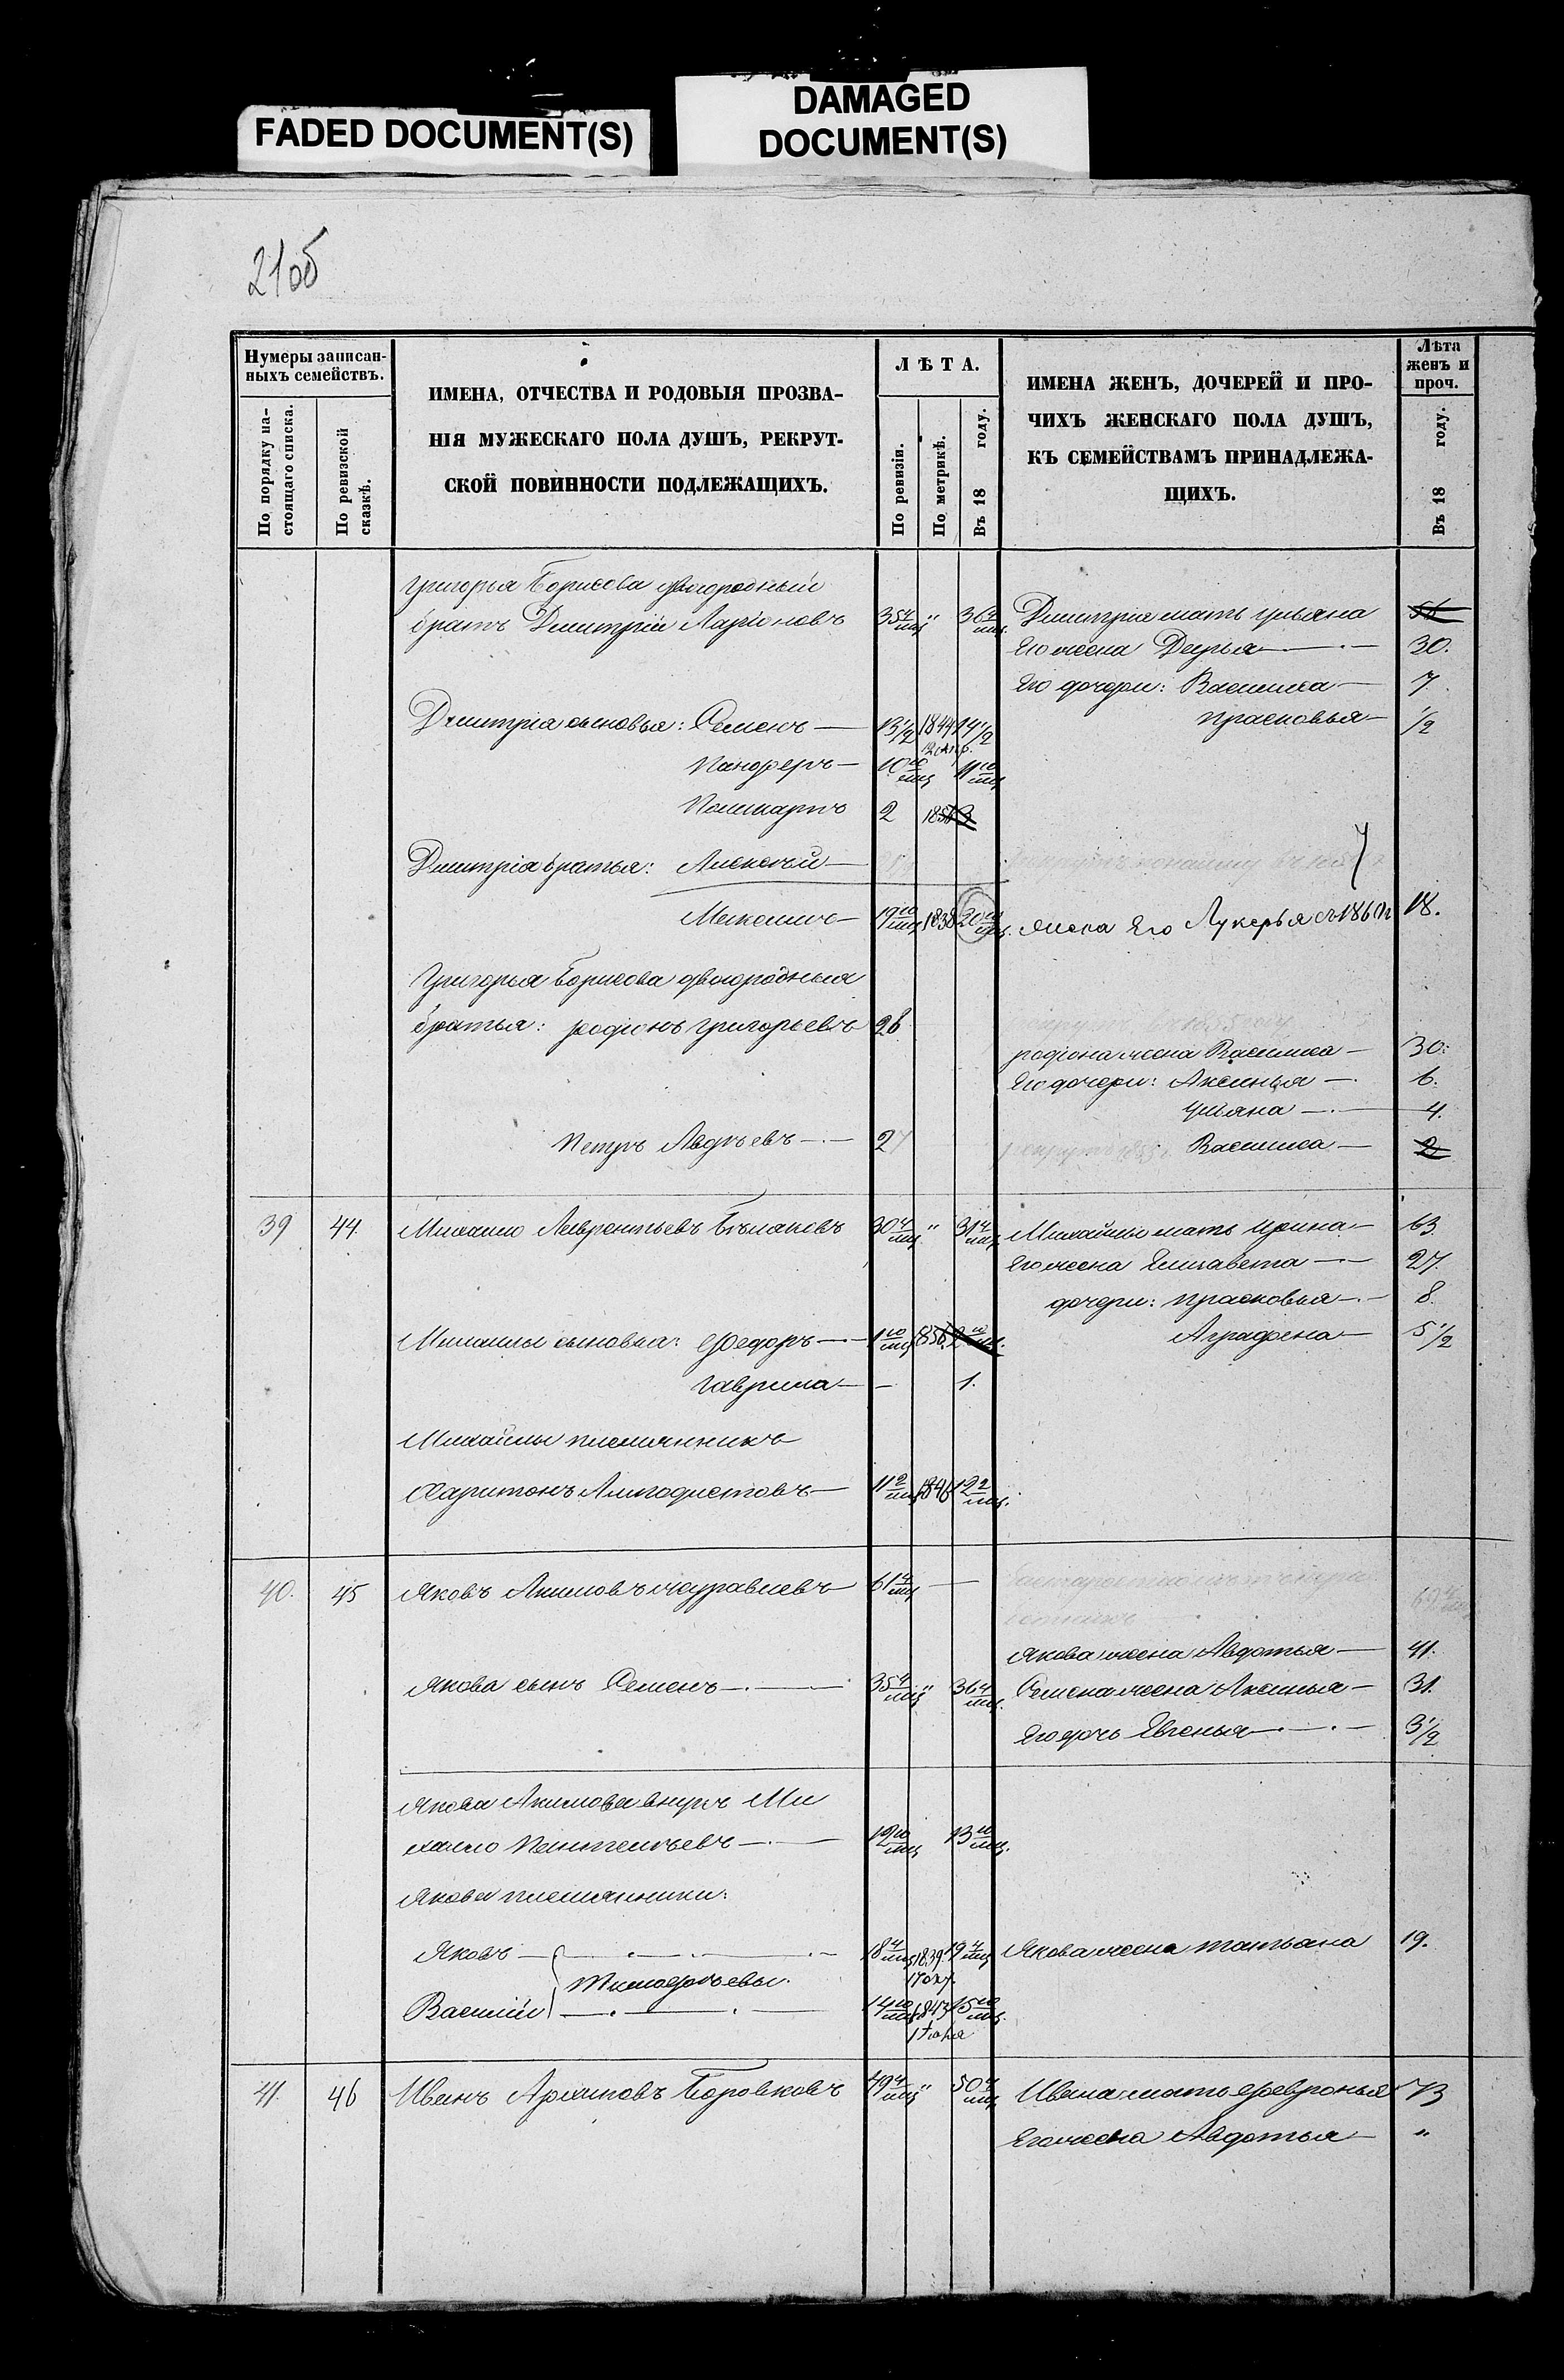 FADED DOCUMENT(S)
DAMAGED
DOCUMENT(S)
21об
Нумеры записан-
ныхъ семействъ.
По порядку на-
стоящаго списка.
По ревизской
сказкѣ.
ИМЕНА, ОТЧЕСТВА И РОДОВЫЯ ПРОЗВА-
НІЯ МУЖЕСКАГО ПОЛА ДУШЪ, РЕКРУТ-
СКОЙ ПОВИННОСТИ ПОДЛЕЖАЩИХЪ.
ЛѢТА.
По ревизіи.
По метрикѣ.
Въ 18 году.
ИМЕНА ЖЕНЪ, ДОЧЕРЕЙ И ПРО-
ЧИХЪ ЖЕНСКАГО ПОЛА ДУШЪ,
КЪ СЕМЕЙСТВАМЪ ПРИНАДЛЕЖА-
ЩИХЪ.
Лѣта
женъ и
проч.
Въ 18 году.
Григорья Борисова двоюродный
братъ Дмитрій Ларіоновъ 35 4/мц " 36 4/мц. Дмитрія мать Ульяна
Его жена Дарья 30.
Его дочери: Василиса 7.
Прасковья 1/2
Дмитрія сыновья: Семенъ 13 1/2 1844 14 1/2
Панферъ 10 10/мц 11 10/мц
Поликарпъ 2 1856 3
Дмитрія братья: Алексѣй
Максимъ 19 10/мц 1838 20 10/мц. жена Его Лукерья съ 1860 18.
Григорья Борисова двоюродныя
братья: Родіонъ Григорьевъ 26
Родіона жена Василиса 30.
Его дочери: Аксинья 6.
Ульяна 4.
Петръ Авдѣевъ 27 Василиса 2
39 44. Михайло Лаврентьевъ 30 4/мц " 31 4/мц Михайлы мать Ирина 63.
Его жена Елисавета 27.
дочери: Прасковья 8.
Михайлы сыновья: Федоръ 1 10/мц 1856 2 10/мц. Аграфена 5 1/2
Гаврила — 1.
Михайлы племянникъ
Харитонъ 11 2/мц 1846 12 2/мц.
40. 45 Яковъ Акимовъ Журавлевъ 61 4/мц —
Якова жена Авдотья 41.
Якова сынъ Семенъ 35 4/мц " 36 4/мц. Семена жена Аксинья 31.
Его дочь Евгенья 3 1/2
Якова Акимова внукъ Ми
хайло 12 10/мц 13 10/мц.
Якова племянники:
Яковъ 18 4/мц 1839 19 4/мц Якова жена Татьяна 19.
Тимофѣевы.
Василій 14 10/мц 1843 15 10/мц.
41. 46 Иванъ Архиповъ Боровковъ 49 4/мц " 50 4/мц Ивана мать Февронья 73
Его жена Авдотья "